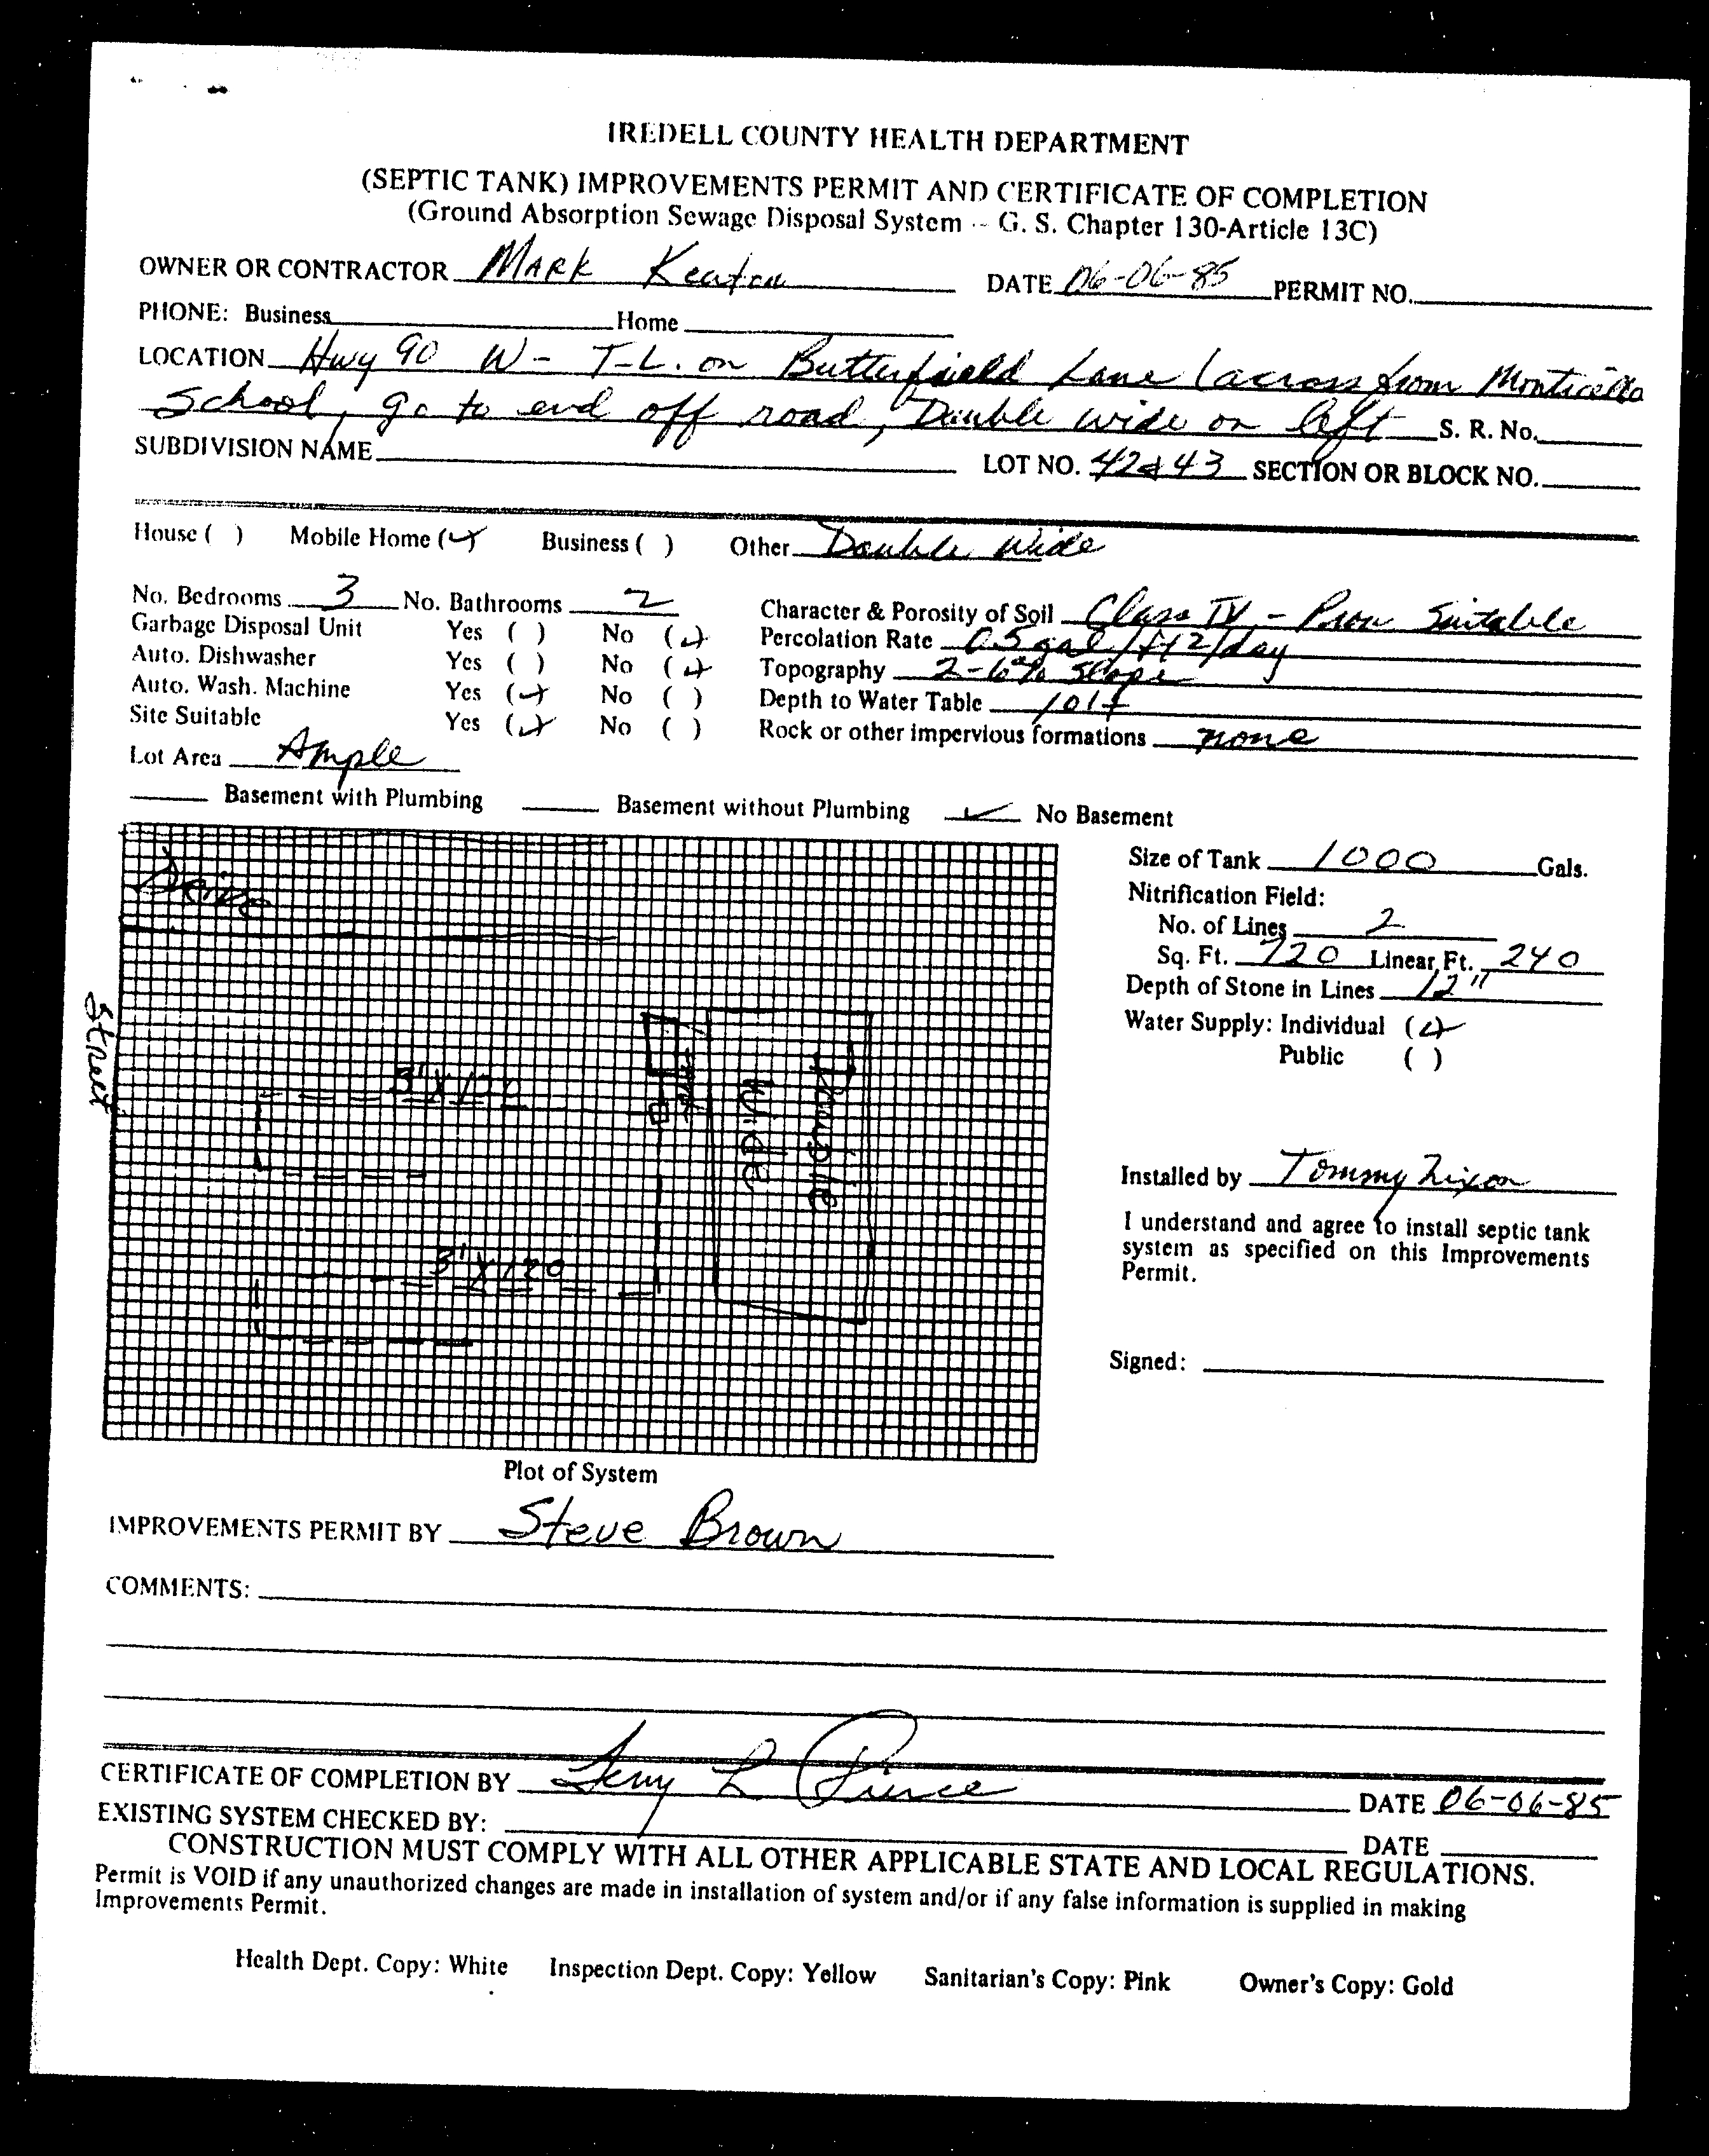 IREDELL COUNTY HEALTH DEPARTMENT
(SEPTIC TANK) IMPROVEMENTS PERMIT AND CERTIFICATE OF COMPLETION
(Ground Absorption Sewage Disposal System -- G. S. Chapter 130-Article 13C)
OWNER OR CONTRACTOR Mark Keaton DATE 06-06-85 PERMIT NO.
PHONE: Business Home
LOCATION Hwy 90 W - T-L. on Butterfield Lane (across from Monticello
School, go to end off road, Double wide on left S. R. No.
SUBDIVISION NAME LOT NO. 42&43 SECTION OR BLOCK NO.
House ( ) Mobile Home (✓) Business ( ) Other Double Wide
No. Bedrooms 3 No. Bathrooms 2
Garbage Disposal Unit Yes ( ) No (✓)
Auto. Dishwasher Yes ( ) No (✓)
Auto. Wash. Machine Yes (✓) No ( )
Site Suitable Yes (✓) No ( )
Lot Area Ample
Character & Porosity of Soil Class IV - Prov Suitable
Percolation Rate 0.5 gal/ft2/day
Topography 2-6% Slope
Depth to Water Table 10'+
Rock or other impervious formations none
Basement with Plumbing Basement without Plumbing ✓ No Basement
Drive
Street
3'X120
Double
Wide
3'X120
Plot of System
Size of Tank 1000 Gals.
Nitrification Field:
No. of Lines 2
Sq. Ft. 720 Linear Ft. 240
Depth of Stone in Lines 12"
Water Supply: Individual (✓)
Public ( )
Installed by Tommy Nixon
I understand and agree to install septic tank
system as specified on this Improvements
Permit.
Signed:
IMPROVEMENTS PERMIT BY Steve Brown
COMMENTS:
CERTIFICATE OF COMPLETION BY L Pierce DATE 06-06-85
EXISTING SYSTEM CHECKED BY: DATE
CONSTRUCTION MUST COMPLY WITH ALL OTHER APPLICABLE STATE AND LOCAL REGULATIONS.
Permit is VOID if any unauthorized changes are made in installation of system and/or if any false information is supplied in making
Improvements Permit.
Health Dept. Copy: White Inspection Dept. Copy: Yellow Sanitarian's Copy: Pink Owner's Copy: Gold